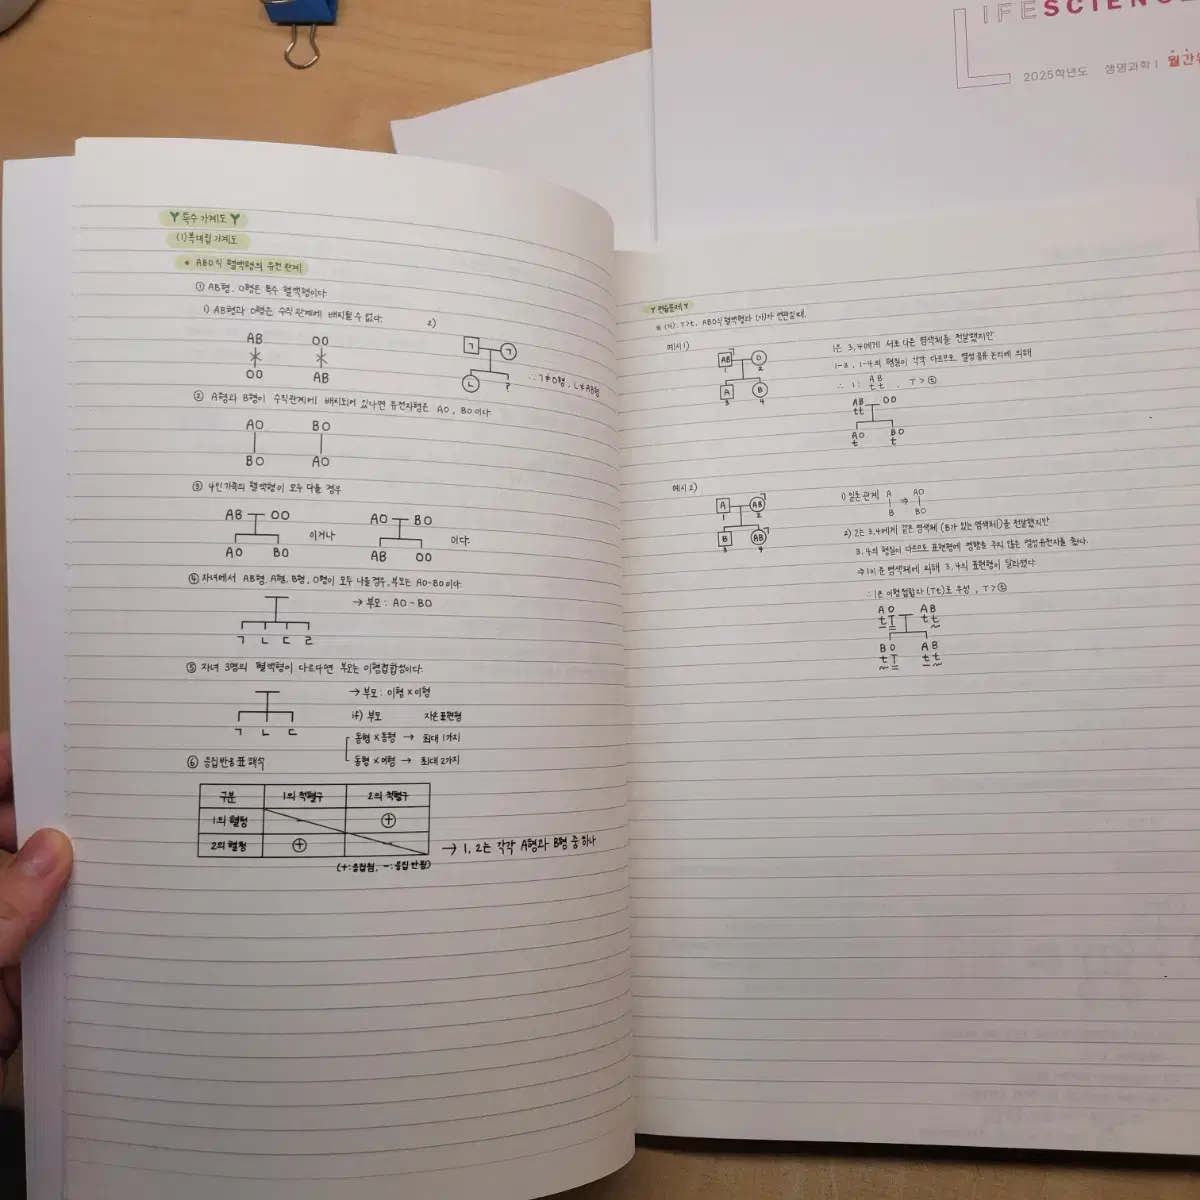 LIFESCIENCE
2025학년도 생명과학Ⅰ 월간
특수 가계도
(1) 복대립 가계도
* ABO식 혈액형의 유전 관계
① AB형, O형은 특수 혈액형이다
1) AB형과 O형은 수직관계에 배치될 수 없다.
2)
AB OO
OO AB
ㄱ ㄱ
ㄴ ?
∴ ㄱ≠O형, ㄴ≠AB형
② A형과 B형이 수직관계에 배치되어 있다면 유전자형은 AO, BO이다.
AO BO
BO AO
③ 4인가족의 혈액형이 모두 다를 경우
AB OO 이거나 AO BO 이다.
AO BO AB OO
④ 자녀에서 AB형, A형, B형, O형이 모두 나올 경우, 부모는 AO-BO이다.
→ 부모: AO - BO
ㄱ ㄴ ㄷ ㄹ
⑤ 자녀 3명의 혈액형이 다르다면 부모는 이형접합성이다.
→ 부모: 이형×이형
if) 부모 자손 표현형
ㄱ ㄴ ㄷ
동형×동형 → 최대 1가지
동형×이형 → 최대 2가지
⑥ 응집반응표 해석
구분 1의 적혈구 2의 적혈구
1의 혈청 - ⊕
2의 혈청 ⊕ -
→ 1, 2는 각각 A형과 B형 중 하나
(+:응집됨, -:응집 안 됨)
연습문제
* (가): T>t, ABO식 혈액형과 (가)가 연관일 때.
예시1)
AB O
1 2
A B
3 4
1은 3,4에게 서로 다른 염색체를 전달했지만
1-3, 1-4의 형질이 각각 다르므로 열성 논리에 의해
∴ 1: AB tt, T>ⓣ
AB OO
tt
AO BO
t t
예시2)
A AB
1 2
B AB
3 4
1) 일촌관계 A ⇒ AO
B BO
2) 2는 3,4에게 같은 염색체 (B가 있는 염색체)을 전달했지만
3,4의 형질이 다르므로 표현형에 영향을 주지 않은 열성유전자를 줬다.
⇒ 1이 준 염색체에 의해 3,4의 표현형이 달라졌다
∴ 1은 이형접합자(Tt)로 우성, T>ⓣ
AO AB
tT tt
BO AB
tT tt